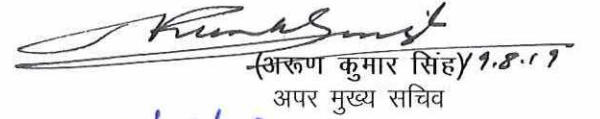 (अरूण कुमार सिंह) 9.8.19
अपर मुख्य सचिव